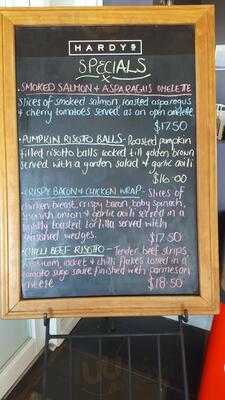 HARDYS
SPECIALS
SMOKED SALMON & ASPARAGUS OMELETE
Slices of smoked salmon, roasted asparagus
& cherry tomatoes served as an open omelete
$17.50
PUMPKIN RISOTTO BALLS - Roasted pumpkin
filled risotto balls cooked till golden brown
served with a garden salad & garlic aioli
$16.00
CRISPY BACON & CHICKEN WRAP - Slices of
chicken breast, crispy bacon, baby spinach,
spanish onion & garlic aioli served in a
lightly toasted tortilla served with
seasoned wedges. $17.50
CHILLI BEEF RISOTTO - Tender beef strips
rocket & chilli flakes tossed in a
tomato sugo sauce finished with parmesan
cheese $18.50